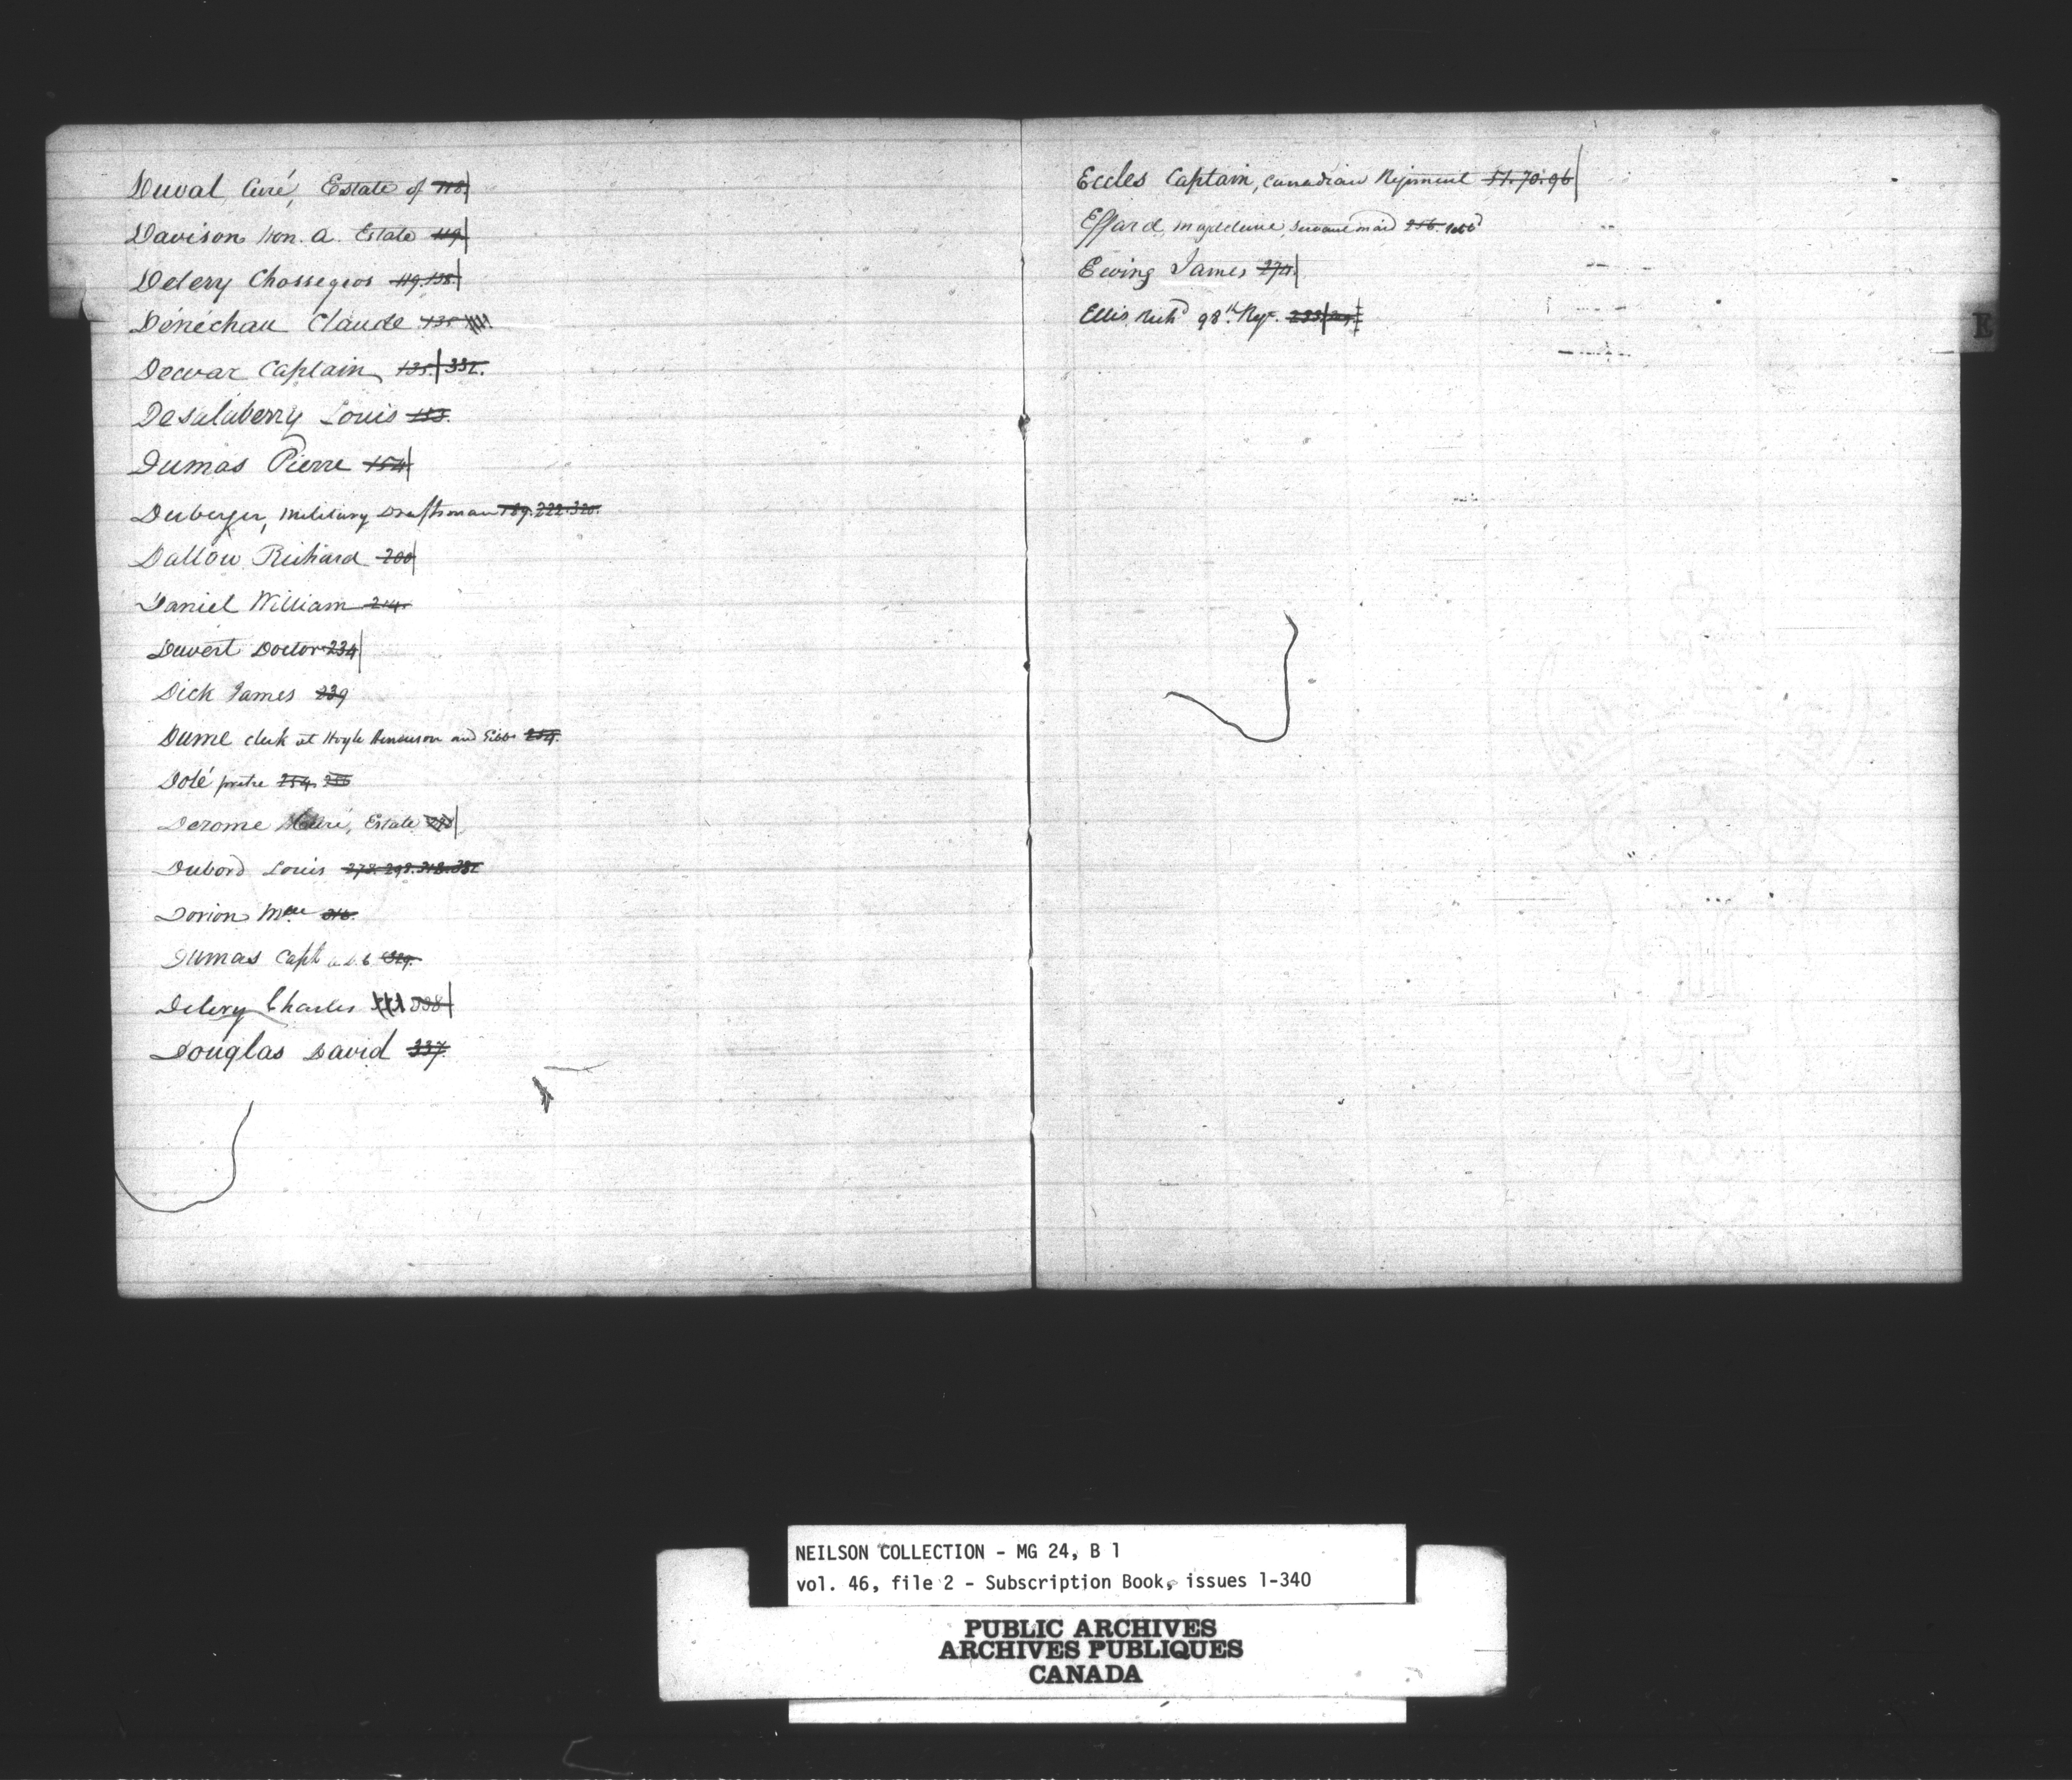 Duval Curé, Estate of 118.
Davison Hon. A. Estate 119.
Delery Chossegros 119. 138.
Dénéchau Claude 135
Dewar Captain 135. 331.
Desalaberry Louis 153.
Dumas Pierre 154.
Duberger, Military Draftsman 189. 222. 320.
Dallow Richard 200
Daniel William 214.
Duvert Doctor 234
Dick James 239
Dume clerk at Hoyle Henderson and Gibbs 254.
Dolé pretre 254. 256
Derome Estate
Dubord Louis 278. 298. 312. 331
Dorion Mde 316.
Dumas Capt 329.
Delery Charles 338
Douglas David 337.
Eccles Captain, Canadian Regiment 51. 70. 96
Effard, Magdeleine, servant maid 256.
Ewing James 274.
Ellis Richd 98th Regt. 233
E
NEILSON COLLECTION - MG 24, B 1
vol. 46, file 2 - Subscription Book, issues 1-340
PUBLIC ARCHIVES
ARCHIVES PUBLIQUES
CANADA